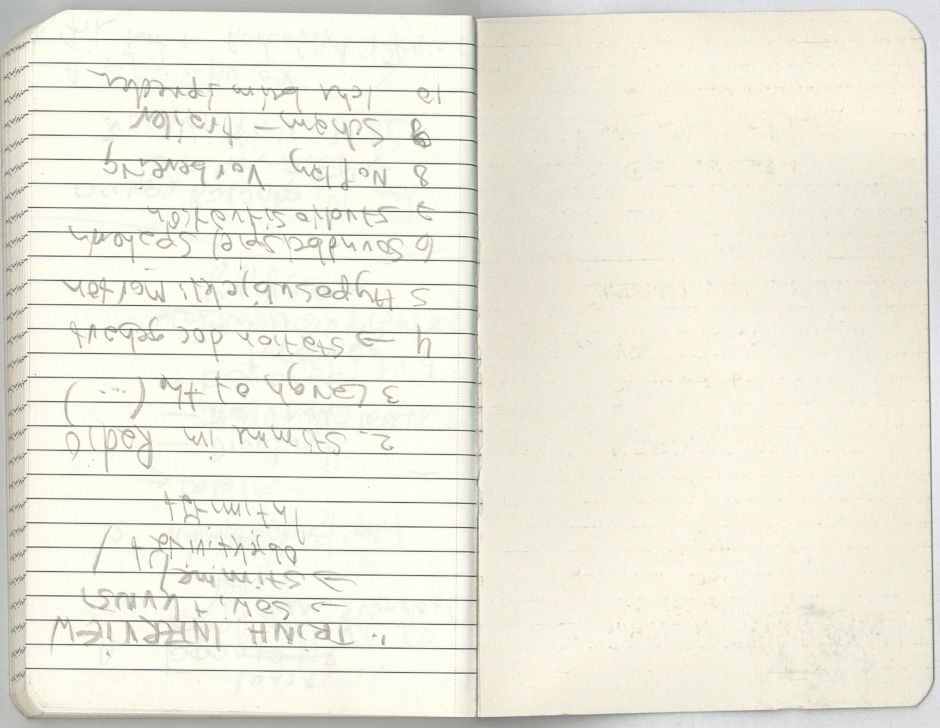 1. TRINH INTERVIEW
→ Sov.t
→ Stimme/
Objektivität/
Intimität
2. Stimme im Radio
3 Laugh of the (...)
4 → Station doc gebaut
5 Hyposubjekt: Morton
6 Soundbeispiel Spahorn
7 Studiosituation
8 No Plan Vorbereitg
9 Scham – trailer
10 Ichr beim sprechen